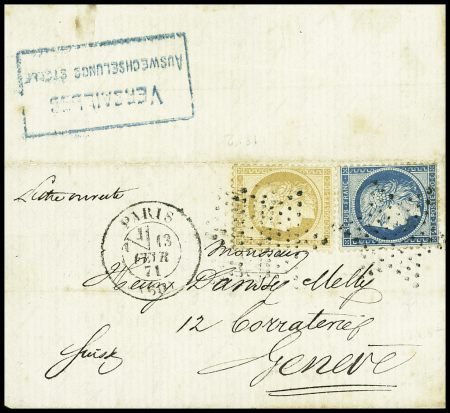 VERSAILLES
AUSWECHSELUNGS STELLE
Lettre ouverte
PARIS
13
FEVR
71
(60)
REPUB FRANC
Monsieur
Henry Melly
12 Corraterie
Suisse
Genève